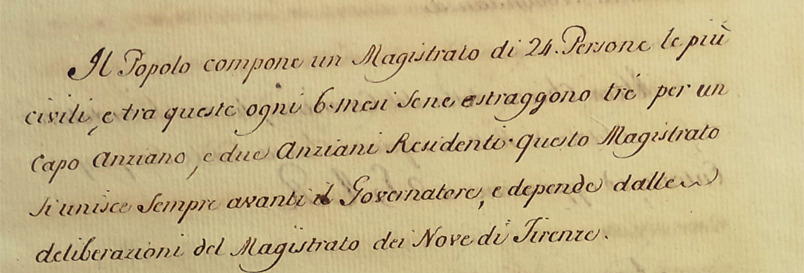 Il Popolo compone un Magistrato di 24. Persone le più
civili, e tra queste ogni 6. mesi sene estraggono tré per un
Capo Anziano, e due Anziani Residenti. Questo Magistrato
si unisce sempre avanti il Governatore, e depende dalle
deliberazioni del Magistrato dei Nove di Firenze.